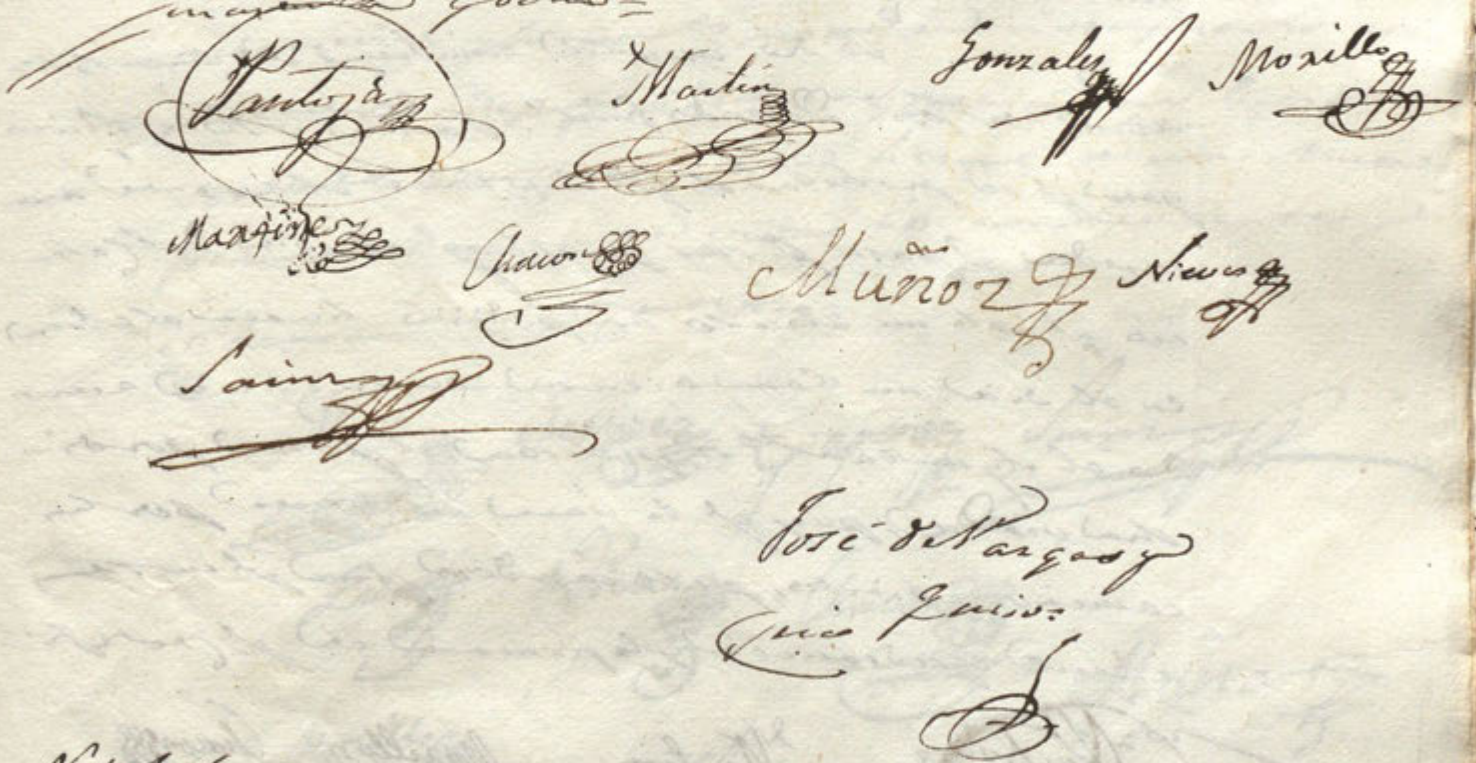 Pantoja Martin Gonzales Morillo
Martinez Chacon Muñoz Nieves
Sainz
José de Vargas y